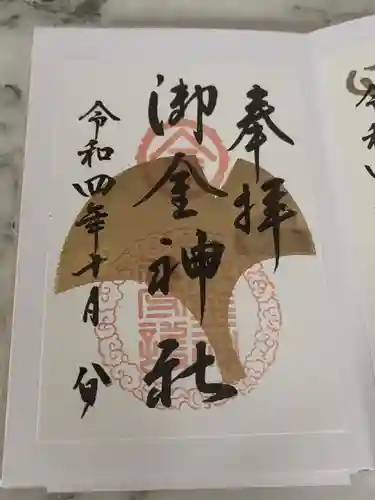 奉拝
御金神社
令和四年十月